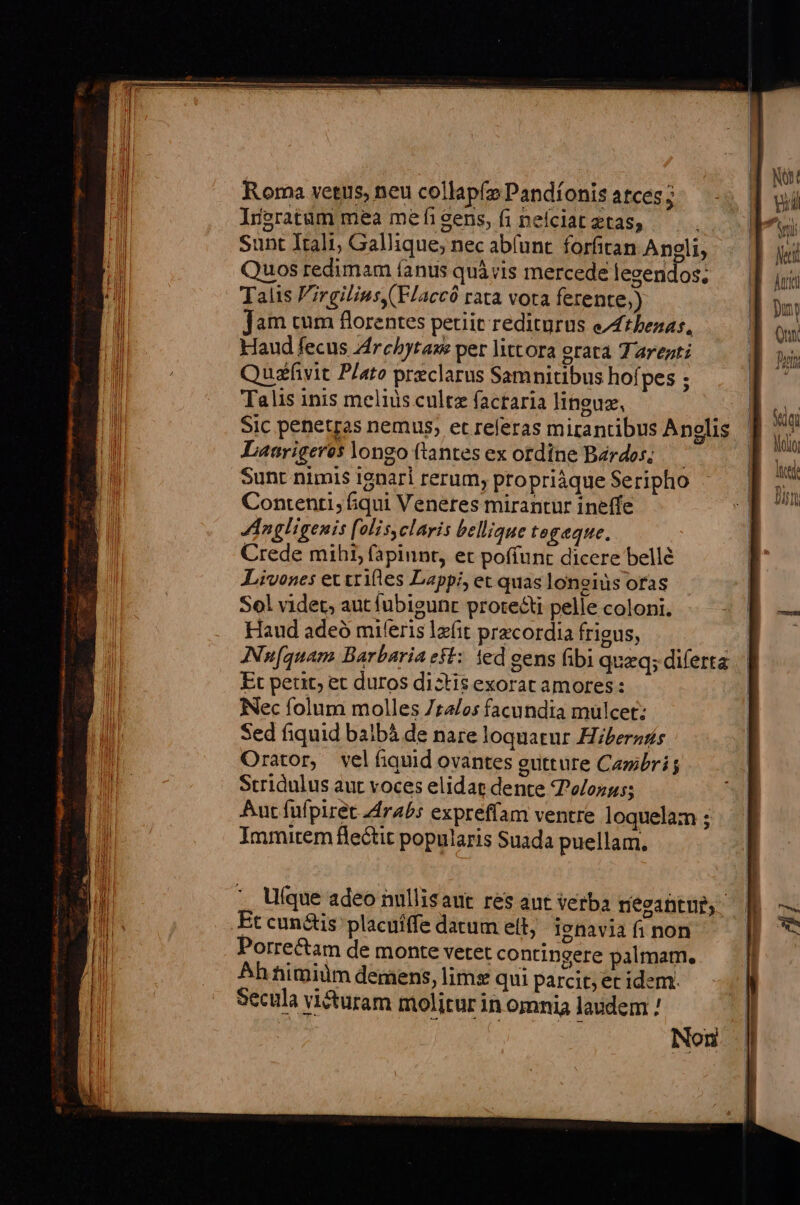 Roma vetus, neu collapſæ Pandíonis arces;
Irrgratam mea me ſi gens, ſi neſciat ætas,
Sunt Itali, Gallique, nec abſunt forſitan Angli,
Quos redimam ſanus quâvis mercede legendos;
Talis Virgilius,(Flaccô rata vota ferente,)
Jam tum florentes petiit rediturus Athenas.
Haud ſecus Archytaæ per littora grata Tarenti
Quæſivit Plato præclarus Samnitibus hoſpes;
Talis inis meliùs cultæ ſacraria linguæ,
Sic penetras nemus, et reſeras mirantibus Anglis
Laurigeros longo ſtantes ex ordine Bardos;
Sunt nimis ignari rerum, propriâque Seripho
Contenti, ſiqui Veneres mirantur ineſſe
Angligenis ſolis, claris bellique togaque.
Crede mihi, ſapiunt, et poſſunt dicere bellè
Livones et triſtes Lappi, et quas longiùs oras
Sol videt, aut ſubigunt protecti pelle coloni.
Haud adeò miſeris læſit præcordia frigus,
Nuſquam Barbaria eſt: ſed gens ſibi quæq; diſerta
Et petit, et duros dictis exorat amores:
Nec ſolum molles Italos facundia mulcet:
Sed ſiquid balbâ de nare loquatur Hibernûs
Orator, vel ſiquid ovantes gutture Cambri;
Stridulus aut voces elidat dente Polonus;
Aut ſuſpirèt Arabs expreſſam ventre loquelam;
Immitem flectit popularis Suada puellam.
Uſque adeo nullis aut res aut verba negantur,
Et cunctis placuiſſe datum eſt, ignavia ſi non
Porrectam de monte vetet contingere palmam.
Ah nimiùm demens, limæ qui parcit, et idem
Secula victuram molitur in omnia laudem!
Non